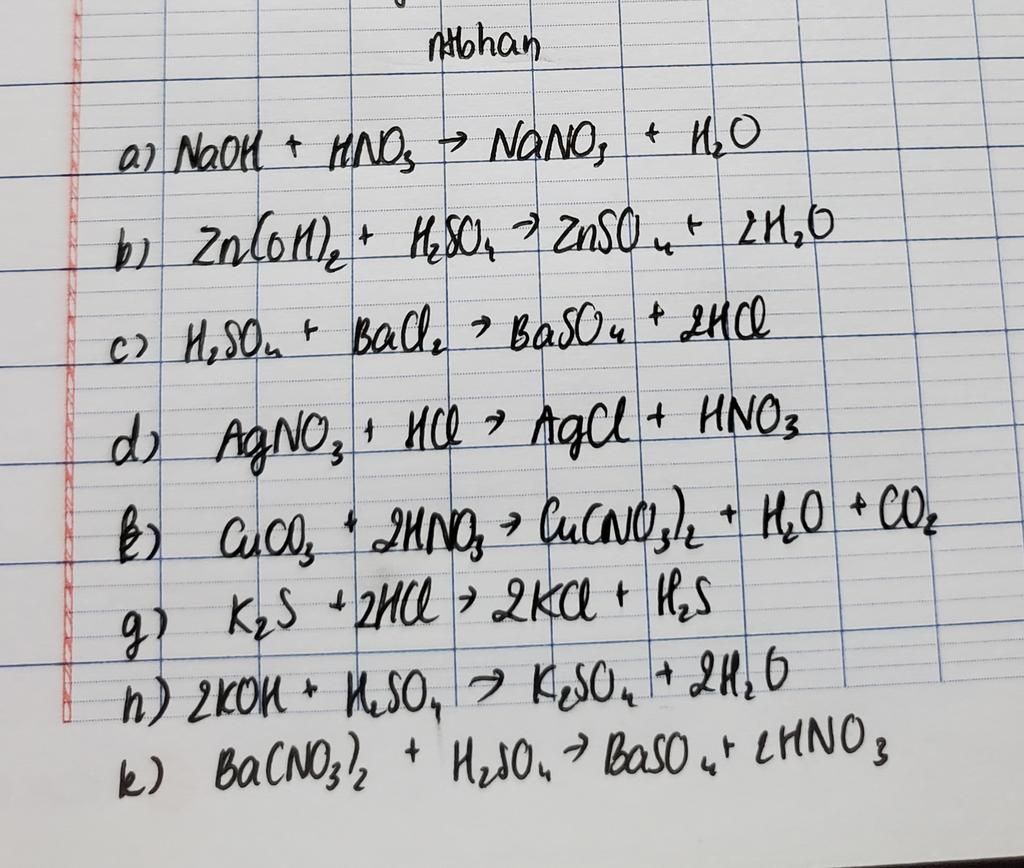 a) NaOH + HNO₃ → NaNO₃ + H₂O
b) Zn(OH)₂ + H₂SO₄ → ZnSO₄ + 2H₂O
c) H₂SO₄ + BaCl₂ → BaSO₄ + 2HCl
d) AgNO₃ + HCl → AgCl + HNO₃
CuCO₃ + 2HNO₃ → Cu(NO₃)₂ + H₂O + CO₂
g) K₂S + 2HCl → 2KCl + H₂S
h) 2KOH + H₂SO₄ → K₂SO₄ + 2H₂O
k) Ba(NO₃)₂ + H₂SO₄ → BaSO₄ + 2HNO₃